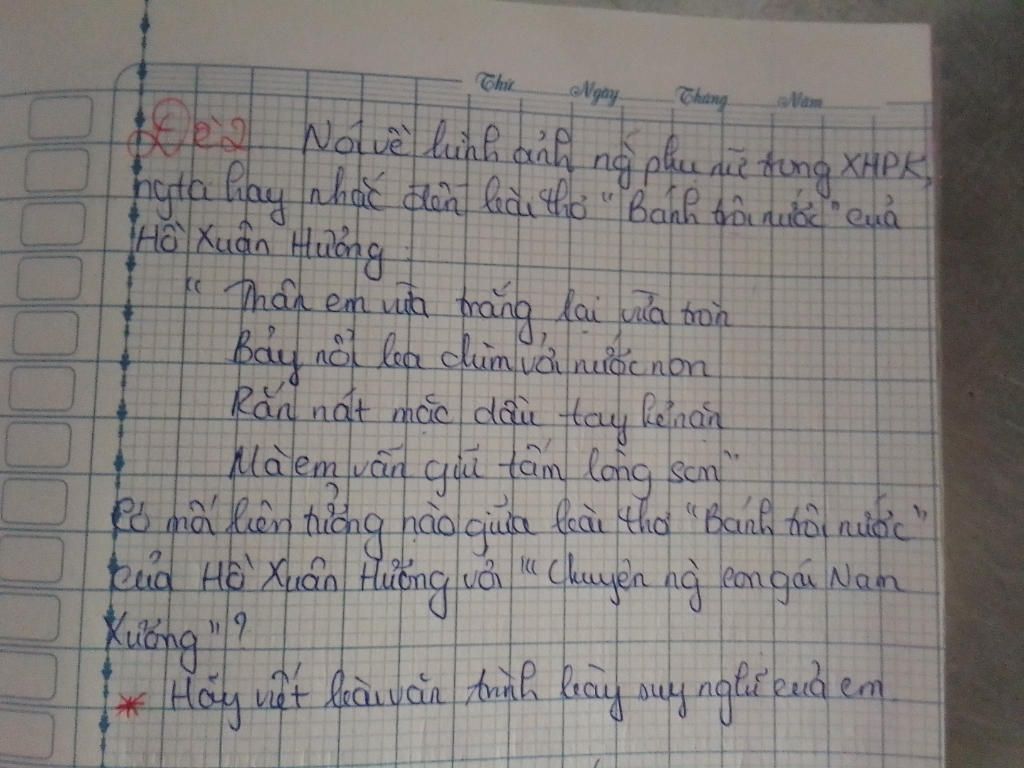 Thứ Ngày Tháng Năm
Đề 2 Nói về hình ảnh ng` phụ nữ trong XHPK,
ngta hay nhắc đến bài thơ "Bánh trôi nước" của
Hồ Xuân Hương :
" Thân em vừa trắng, lại vừa tròn
Bảy nổi ba chìm với nước non
Rắn nát mặc dầu tay kẻ nặn
Mà em vẫn giữ tấm lòng son"
Có mối liên tưởng nào giữa bài thơ "Bánh trôi nước"
của Hồ Xuân Hương với "Chuyện ng` con gái Nam
Xương"?
* Hãy viết bài văn trình bày suy nghĩ của em